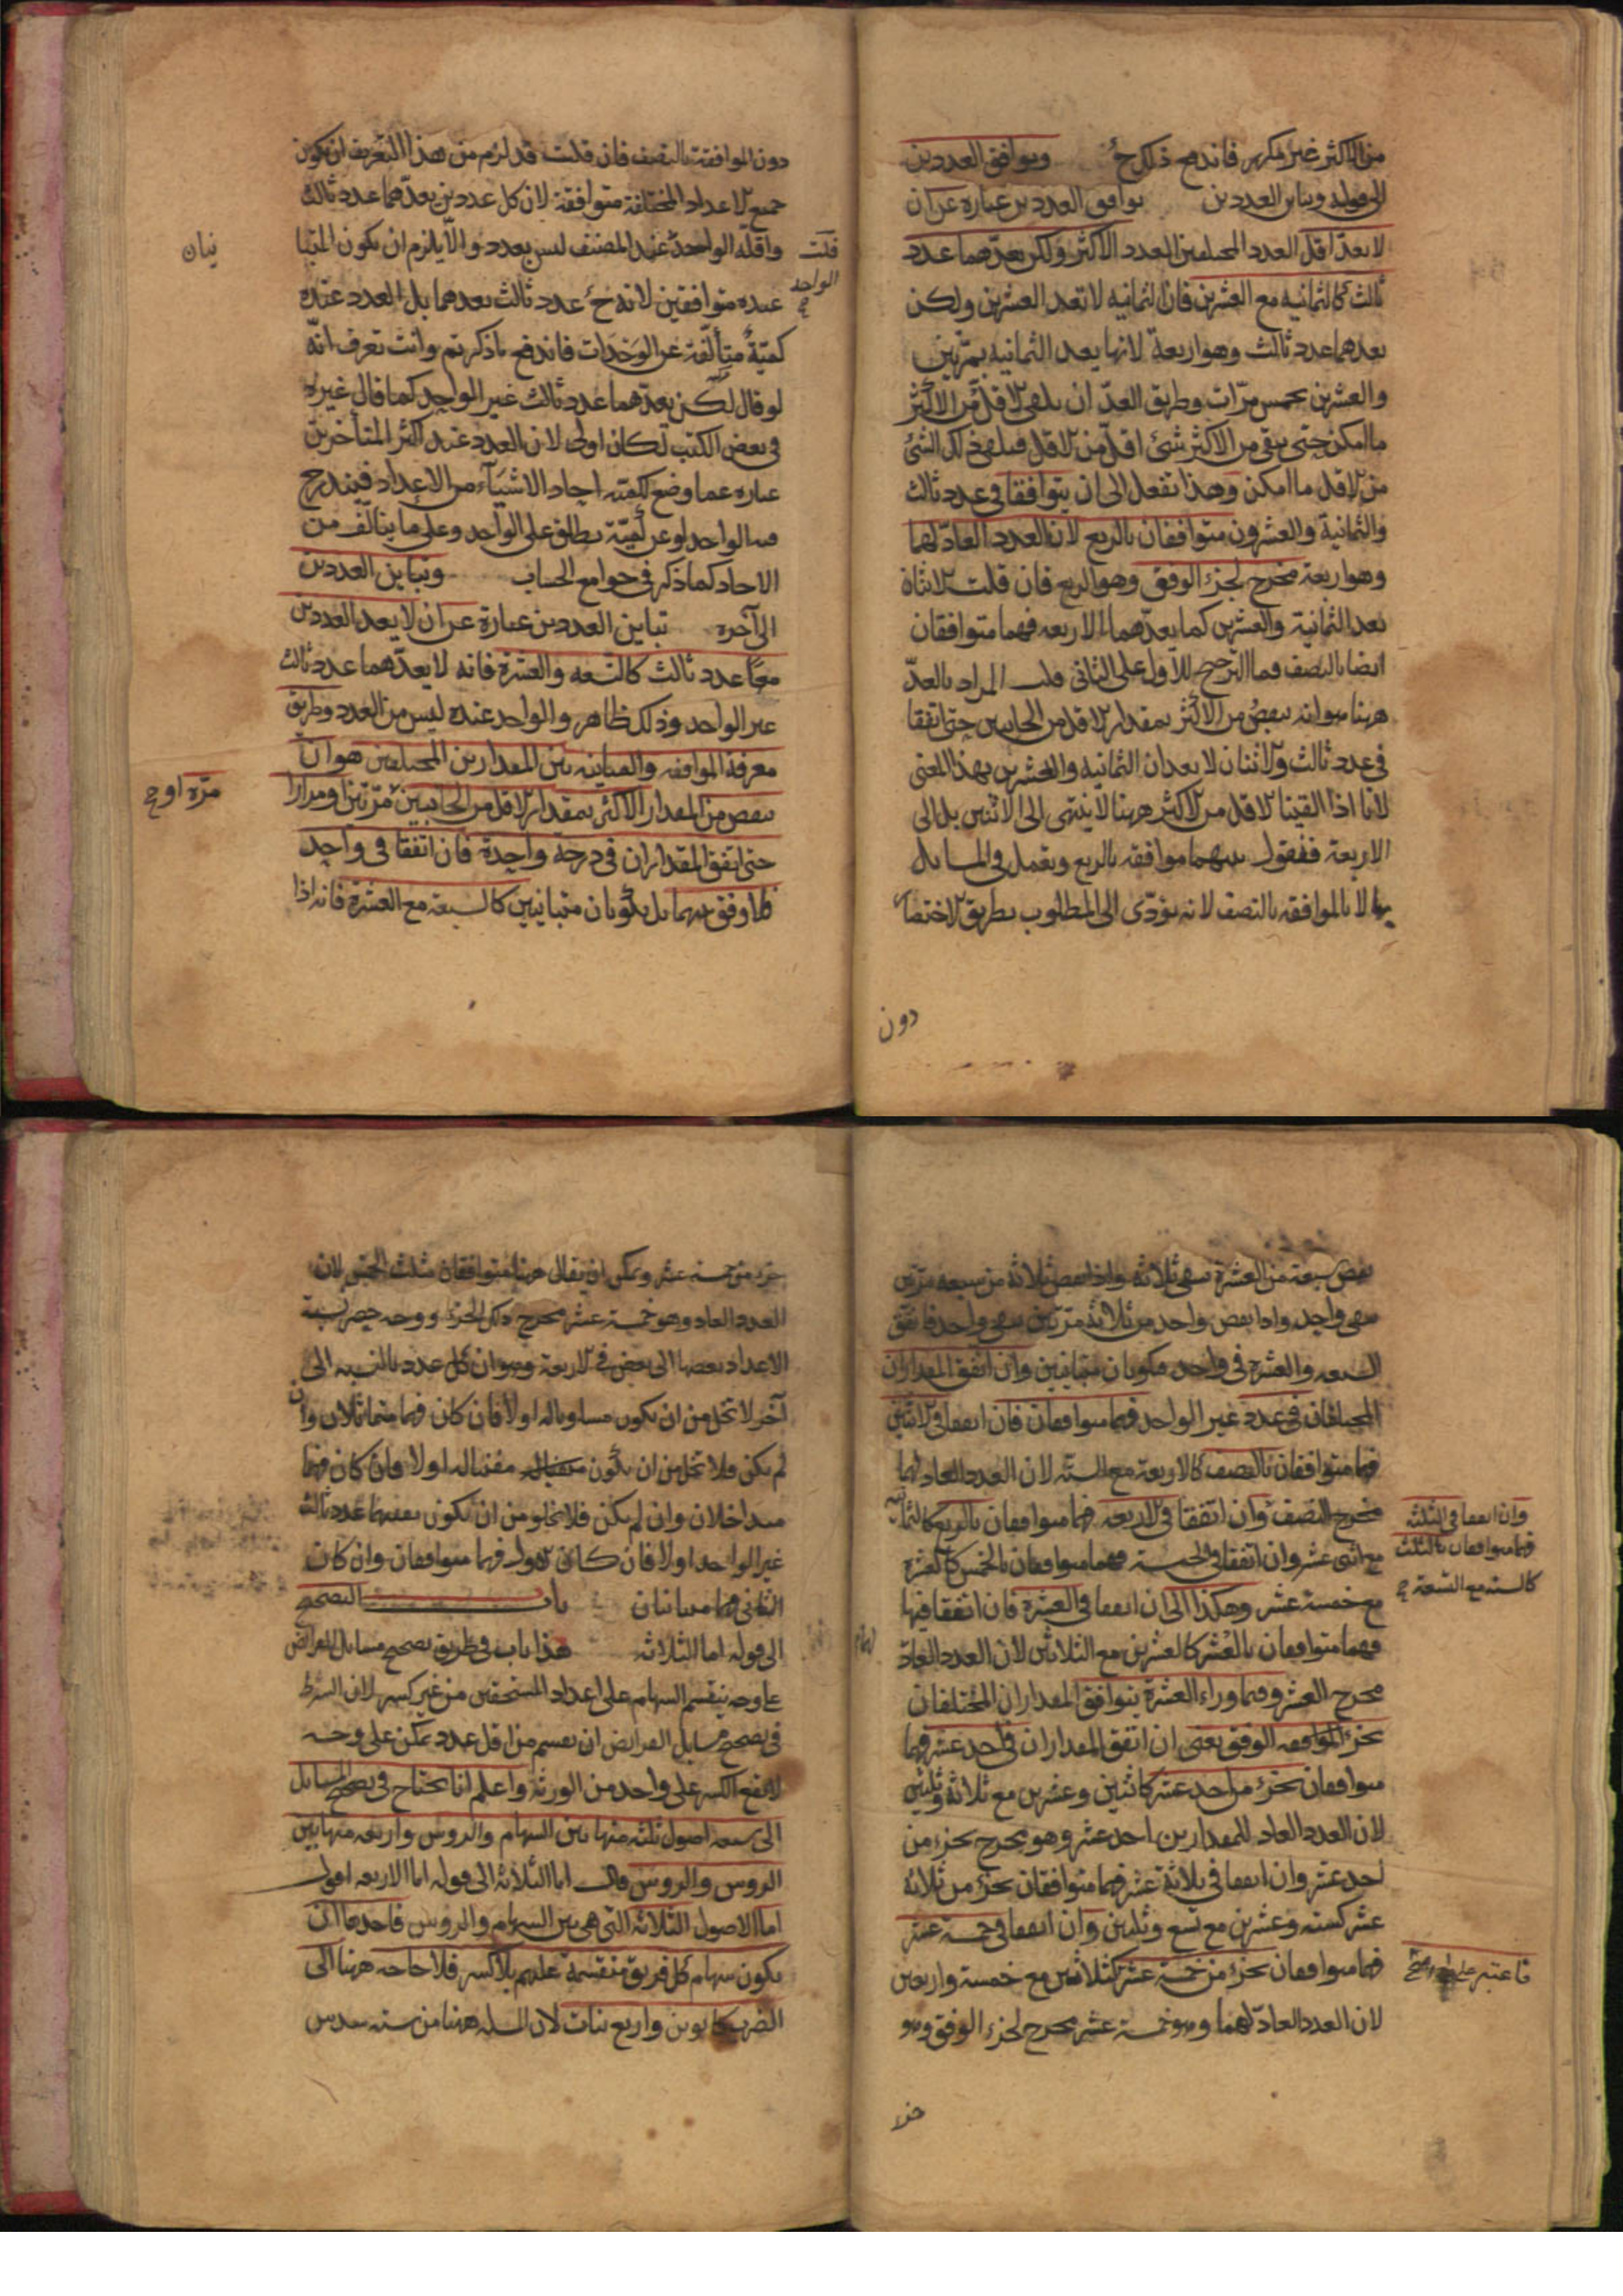 من الاكثر غير مكرر فاندفع ذلك ح وتوافق العددين
الى قوله وتباين العددين توافق العددين عبارة عن ان
لا يعد اقل العدد المختلفين العدد الاكثر ولكن يعدهما عدد
ثالث كالثمانيه مع العشرين فان الثمانيه لا تعد العشرين ولكن
يعدهما عدد ثالث وهو اربعة لانها يعد الثمانيه بمرتين
والعشرين بخمس مرّات وطريق العدّ ان يلقى الاقل من الاكثر
ما امكن حتى يبقى من الاكثر شئ اقل من الاقل فيلقى ذلك الشئ
من الاقل ما امكن وهذا نفعل الى ان يتوافقا في عدد ثالث
والثمانية والعشرون متوافقان بالربع لان العدد العادّ لهما
وهو اربعة مخرج لجزء الوفق وهو الربع فان قلت الاثنان
يعد الثمانية والعشرين كما يعدّهما الاربعه فهما متوافقان
ايضا بالنصف فما الترجيح للاول على الثاني قلت المراد بالعدّ
ههنا هو انه ينقص من الاكثر بمقدار الاقل من الجانبين حتى اتفقا
في عدد ثالث والاثنان لا يعدان الثمانيه والعشرين بهذا المعنى
لانا اذا القينا الاقل من الاكثر ههنا لا ينتهي الى الاثنين بل الى
الاربعة فنقول بينهما موافقه بالربع ونعمل في المسايل
بها لا بالموافقه بالنصف لانه يؤدّى الى المطلوب بطريق الاختصار
دون
دون الموافقة بالنصف فان قلت قد لزم من هذا التعريف ان تكون
جميع الاعداد المختلفة متوافقة لان كل عددين يعدّهما عدد ثالث
واقلّه الواحد عند المصنف ليس بعدد والّا يلزم ان يكون المتبا
ينان
قلت
الواحد
عنده متوافقين لانه ح عدد ثالث يعدهما بل العدد عنده
كميّةٌ متألّفة عن الوَحَدات فاندفع ماذكرتم وانت تعرف انّه
لو قال لكن يعدّهما عدد ثالث غير الواحد كما قال غيره
في بعض الكتب لكان اولى لان العدد عند اكثر المتأخرين
عباره عما وضع لكميّة احاد الاشيآء من الاعداد فيندرج
فيه الواحد او عن كميّة يطلق على الواحد وعلى ما يتألف من
الاحاد كما ذكر في جوامع الحساب وتباين العددين
الى آخره تباين العددين عبارة عن ان لا يعد العددين
معًا عدد ثالث كالتسعه والعشرة فانه لا يعدّهما عدد ثالث
غير الواحد وذلك ظاهر والواحد عنده ليس من العدد وطريق
معرفة الموافقه والمباينه بين المقدارين المختلفين هو ان
ينقص من المقدار الاكثر بمقدار الاقل من الجانبين مرّتين او مرارا
مرّه او
حتى اتفق المقداران في درجة واحدة فان اتفقا في واحد
فلا وفق بينهما بل يكونان متباينين كالسبعه مع العشرة فانه اذا
ينقص سبعة من العشرة يبقى ثلاثة واذا نقص ثلاثة من سبعه مرّتين
يبقى واحد واذا نقص واحد من ثلاثة مرّتين يبقى واحد فاتفق
السبعه والعشرة في واحد فيكونان متباينين وان اتفق المقداران
المختلفان في عدد غير الواحد فهما متوافقان فان اتفقا في الاثنين
فهما متوافقان بالنصف كالاربعة مع الستّه لان العدد العاد لهما
مخرج النصف وان اتفقا في الاربعه فهما متوافقان بالربع كالثمانيه
وان اتفقا في الثلثه
فهما متوافقان بالثلث
كالسته مع التسعة
مع اثنى عشر وان اتفقا في الخمسة فهما متوافقان بالخمس كالعشرة
مع خمسة عشر وهكذا الى ان اتفقا في العشرة فان اتفقا فيها
فهما متوافقان بالعُشر كالعشرين مع الثلاثين لان العدد العادّ
لهما
مخرج العشر وفيما وراء العشرة يتوافق المقداران المختلفان
بجزء الموافقه الوفق يعنى ان اتفق المقداران في احد عشر فهما
متوافقان بجزء من احد عشر كاثنين وعشرين مع ثلاثة وثلثين
لان العدد العاد للمقدارين احد عشر وهو مخرج بجزء من
احد عشر وان اتفقا في ثلاثة عشر فهما متوافقان بجزء من ثلاثة
عشر كسته وعشرين مع تسع وثلثين وان اتفقا في خمسة عشر
فهما متوافقان بجزء من خمسة عشر كثلاثين مع خمسة واربعين
فاعتبر على هذا
لان العدد العادّ لهما وهو خمسة عشر مخرج لجزء الوفق وهو
جزء
جزء من خمسة عشر ويمكن ان يقال هما متوافقان بثلث الخمس لان
العدد العاد وهو خمسة عشر مخرج ذلك الجزء ووجه حصر نسبة
الاعداد بعضها الى بعض في الاربعة وهو ان كل عدد بالنسبه الى
آخر لا تخل من ان يكون مساويا له اولا فان كان فهما متماثلان وان
لم يكن فلا تخل من ان يكون مفنيا له اولا فان كان فهما
متداخلان وان لم يكن فلا يخلو من ان يكون يعدهما عدد ثالث
غير الواحد اولا فان كان الاول فهما متوافقان وان كان
الثاني فهما متباينان باب التصحيح
الى قوله اما الثلاثه هذا باب في طريق تصحيح مسايل الفرائض
على وجه ينقسم السهام على اعداد المستحقين من غير كسر لان الشرط
في تصحيح مسايل الفرائض ان يقسم من اقل عدد يمكن على وجه
لا يقع الكسر على واحد من الورثة واعلم انا نحتاج في تصحيح المسايل
الى سبعه اصول ثلثه منها بين السهام والروس واربعه منها بين
الروس والروس قال اما الثلاثة الى قوله اما الاربعه اقول
اما الاصول الثلاثه التى هي بين السهام والروس فاحدها ان
يكون سهام كل فريق منقسمة عليهم بلا كسر فلا حاجه ههنا الى
الضرب كابوين واربع بنات لان المسله ههنا من سته سدس